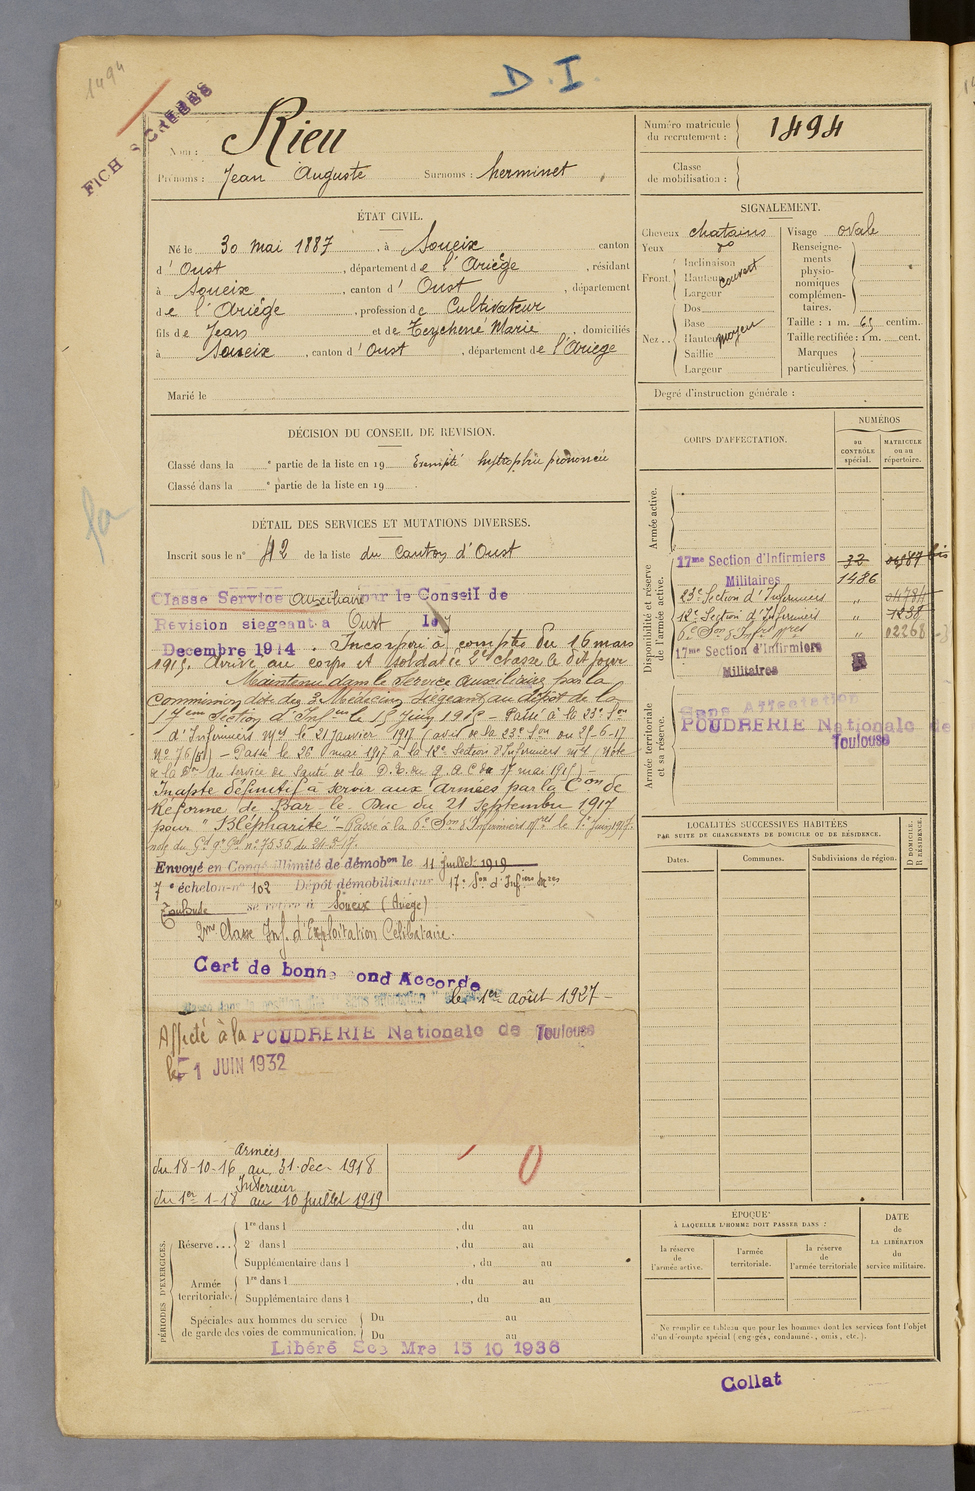 1494
D. I.
FICH
Nom : Rieu
Prénoms : Jean Auguste Surnoms : herminet
Numéro matricule du recrutement : 1494
Classe de mobilisation :
ÉTAT CIVIL.
Né le 30 mai 1887, à Soueix canton
d'Oust, département de l'Ariège, résidant
à Soueix, canton d'Oust, département
de l'Ariège, profession de Cultivateur
fils de Jean et de Teychené Marie, domiciliés
à Soueix, canton d'Oust, département de l'Ariège
Marié le
SIGNALEMENT.
Cheveux chatains
Yeux do
Front Inclinaison
Hauteur couvert
Largeur
Nez Dos
Base
Hauteur moyen
Saillie
Largeur
Visage ovale
Renseignements physionomiques complémentaires.
Taille : 1 m. 63 centim.
Taille rectifiée : 1 m. cent.
Marques particulières.
Degré d'instruction générale :
DÉCISION DU CONSEIL DE REVISION.
Classé dans la e partie de la liste en 19 Exempté prononcée
Classé dans la e partie de la liste en 19
DÉTAIL DES SERVICES ET MUTATIONS DIVERSES.
Inscrit sous le n° 42 de la liste du Canton d'Oust
Classe Service Auxiliaire par le Conseil de
Revision siegeant a Oust le
Decembre 1914. Incorporé à compter du 16 mars
1915. Arrivé au corps et soldat de 2e classe le dit jour
Maintenu dans le service auxiliaire par la
commission dite des 3 Médecins siégeant au dépôt de la
17ème Section d'Infers le 15 juin 1915 - Passé à la 23e Son
d'Infirmiers Mres le 21 Janvier 1917 (avis de la 23e Son du 25-6-17
- Passé le 26 mai 1917 à la 12e Section d'Infirmiers Mres (Note
de la Don du Service de Santé de la D.E. du G.A.C du 17 mai 1917) -
Inapte définitif à servir aux Armées par la Con de
Réforme de Bar-le-Duc du 21 Septembre 1917
pour "Blépharite" - Passé à la 6e Son d'Infirmiers Mres le 1er
n° 7536 du
Envoyé en Congé illimité de démobon le 11 juillet 1919
7e échelon n° 102 Dépôt démobilisateur 17e Son d'Infirs Mres
Toulouse se retire à Soueix (Ariège)
2me Classe Inf. d'Exploitation Célibataire.
Cert de bonne cond Accorde
le 1er août 1927 -
Affecté à la POUDRERIE Nationale de Toulouse
le 1 JUIN 1932
Armées
du 18-10-16 au 31 dec. 1918
Intérieur
du 1er-1-18 au 10 juillet 1919
0
CORPS D'AFFECTATION.
NUMÉROS
au CONTRÔLE spécial.
MATRICULE ou au répertoire.
Armée active.
Disponibilité et réserve de l'armée active.
17me Section d'Infirmiers Militaires 33 bis
1486
23e Section d'Infirmiers " 04784
12e Section d'Infirmiers " 1238
6e Son d'Infirs Mres " 02268
17me Section d'Infirmiers Militaires
Armée territoriale et sa réserve.
Sans Affectation
POUDRERIE Nationale de
Toulouse
LOCALITÉS SUCCESSIVES HABITÉES
PAR SUITE DE CHANGEMENTS DE DOMICILE OU DE RÉSIDENCE.
Dates. Communes. Subdivisions de région.
D DOMICILE. R RÉSIDENCE.
PÉRIODES D'EXERCICES.
Réserve ... 1re dans l , du au
2e dans l , du au
Supplémentaire dans l , du au
Armée territoriale. 1re dans l , du au
Supplémentaire dans l , du au
Spéciales aux hommes du service de garde des voies de communication. Du au
Du au
Libéré Sce Mre 15 10 1936
ÉPOQUE
À LAQUELLE L'HOMME DOIT PASSER DANS :
la réserve de l'armée active.
l'armée territoriale.
la réserve de l'armée territoriale
DATE de LA LIBÉRATION du service militaire.
Ne remplir ce tableau que pour les hommes dont les services font l'objet
d'un décompte spécial (engagés, condamnés, omis, etc.).
Collat